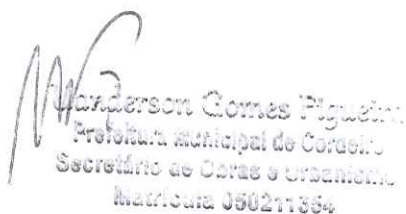 Wanderson Gomes Figueira
Prefeitura Municipal de Cordeiro
Secretário de Obras e Urbanismo
Matrícula 050211354